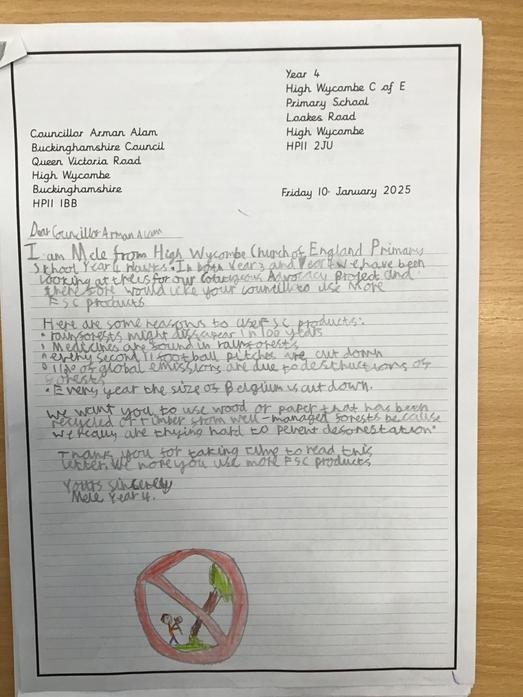 Year 4
High Wycombe C of E
Primary School
Loakes Road
High Wycombe
HP11 2JU
Councillor Arman Alam
Buckinghamshire Council
Queen Victoria Road
High Wycombe
Buckinghamshire
HP11 1BB
Friday 10 January 2025
Dear Councillor Arman Alam
I am Mele from High Wycombe Church of England Primary
School Year 4 Hawks. In both Year 3 and Year 4 we have been
looking at this for our Courageous Advocacy Project and
therefore would like your council to use More
FSC products
Here are some reasons to use FSC products:
• rainforests might dissapear in 100 years
• Medicines are found in rainforests
• every second 11 football pitches are cut down
• 11% of global emissions are due to destructions of
forests
• Every year the size of Belgium is cut down.
We want you to use wood or paper that has been
recycled or timber from well-managed forests because
we really are trying hard to pevent deforestation.
Thank you for taking time to read this
letter. We hope you use more FSC products
Yours sincerely
Mele Year 4.